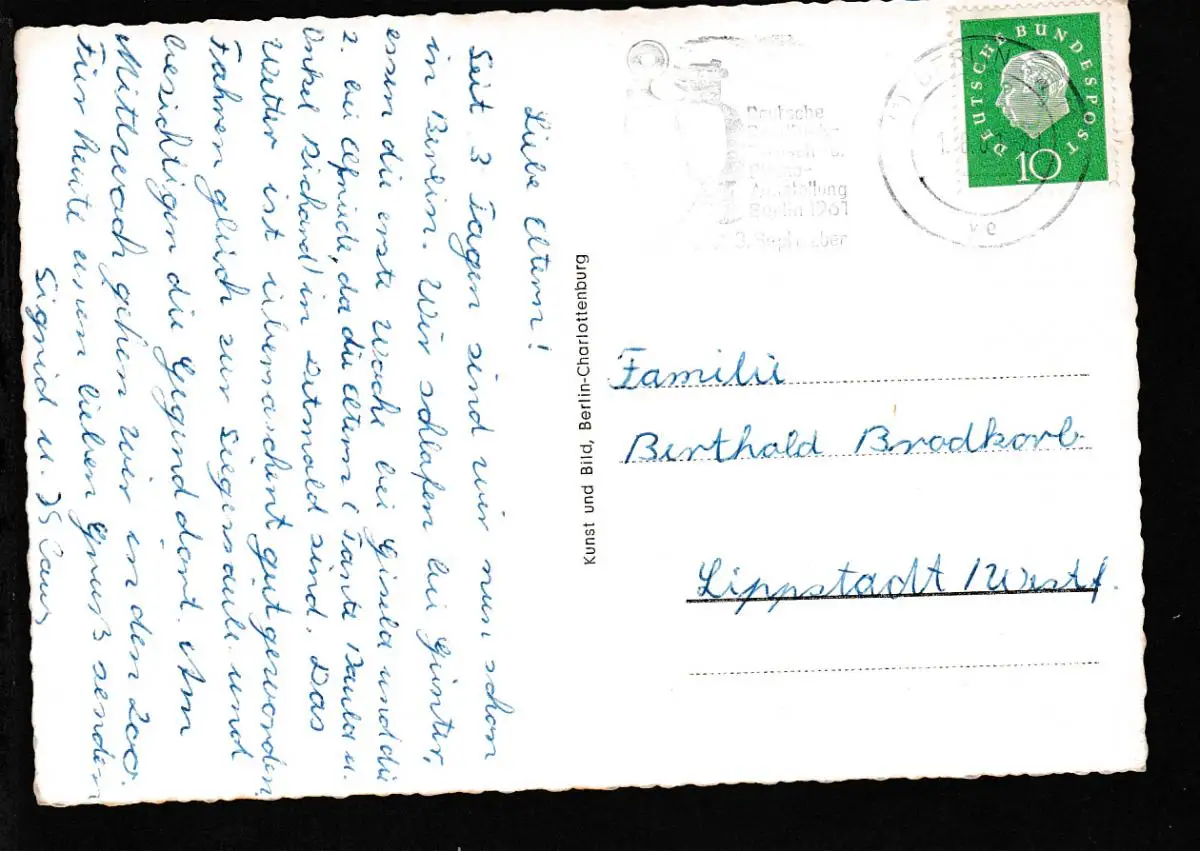 Liebe Eltern!
Seit 3 Tagen sind wir nun schon
in Berlin. Wir schlafen bei Günter,
essen die erste Woche bei Gisela und die
2. bei Elfriede, da die Eltern (Tante Paula u.
Onkel Richard) in Detmold sind. Das
Wetter ist überraschent gut geworden.
Fahren gleich zur Siegessäule und
besichtigen die Gegend dort. Am
Mittwoch gehen wir in den Zoo.
Für heute einen lieben Gruß senden
Sigrid u. Klaus
Kunst und Bild, Berlin-Charlottenburg
Deutsche
Ausstellung
Berlin 1961
3. September
BERLIN
DEUTSCHE BUNDESPOST
10
Familie
Berthold Brodkorb
Lippstadt/Westf.